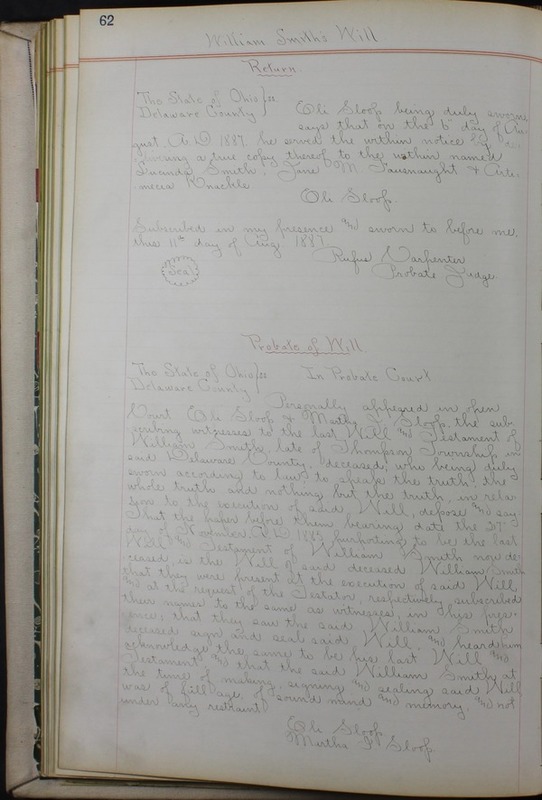 62
William Smith's Will
Return
The State of Ohio } ss.
Delaware County } Eli Sloop being duly sworn
says that on the 6" day of Au-
gust, A.D. 1887. he served the within notice by de-
livering a true copy thereof to the within named
Lucinda Smith, Jane M. & Arte-
mecia Knackle
Eli Sloop.
Subscribed in my presence and sworn to before me,
this 11th day of Aug. 1887
Seal
Rufus Carpenter
Probate Judge.
Probate of Will.
The State of Ohio } ss In Probate Court
Delaware County }
Personally appeared in open
Court Eli Sloop & Martha J. Sloop, the sub-
scribing witnesses to the last Will and Testament of
William Smith, late of Thompson Township, in
said Delaware County, deceased, who being duly
sworn according to law to speak the truth, the
whole truth and nothing but the truth, in rela-
tion to the execution of said Will, depose and say
That the paper before them bearing date the
day of November, A.D. 1885 purporting to be the last
Will and Testament of William Smith now de-
ceased, is the Will of said deceased William Smith
that they were present at the execution of said Will,
and at the request of the Testator, respectively subscribed
their names to the same as witnesses, in his pres-
ence; that they saw the said William Smith
deceased sign and seal said Will, and heard him
acknowledge the same to be his last Will and
Testament and that the said William Smith, at
the time of making, signing and sealing said Will
was of full age, of sound mind and memory, and not
under any restraint
Eli Sloop
Martha J. Sloop